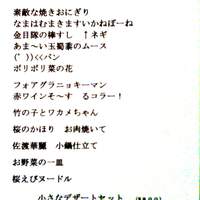 素敵な焼きおにぎり
なまはむまきますいかねぼーね
金目鯛の棒すし ↑ネギ
あま～い玉蜀黍のムース
(゜))<<パン
ポリポリ菜の花
フォアグラニョキーマン
赤ワインそ～す るコラー!
竹の子とワカメちゃん
桜のかほり お肉焼いて
佐渡華麗 小鍋仕立て
お野菜の一皿
桜えびヌードル
小さなデザートセット